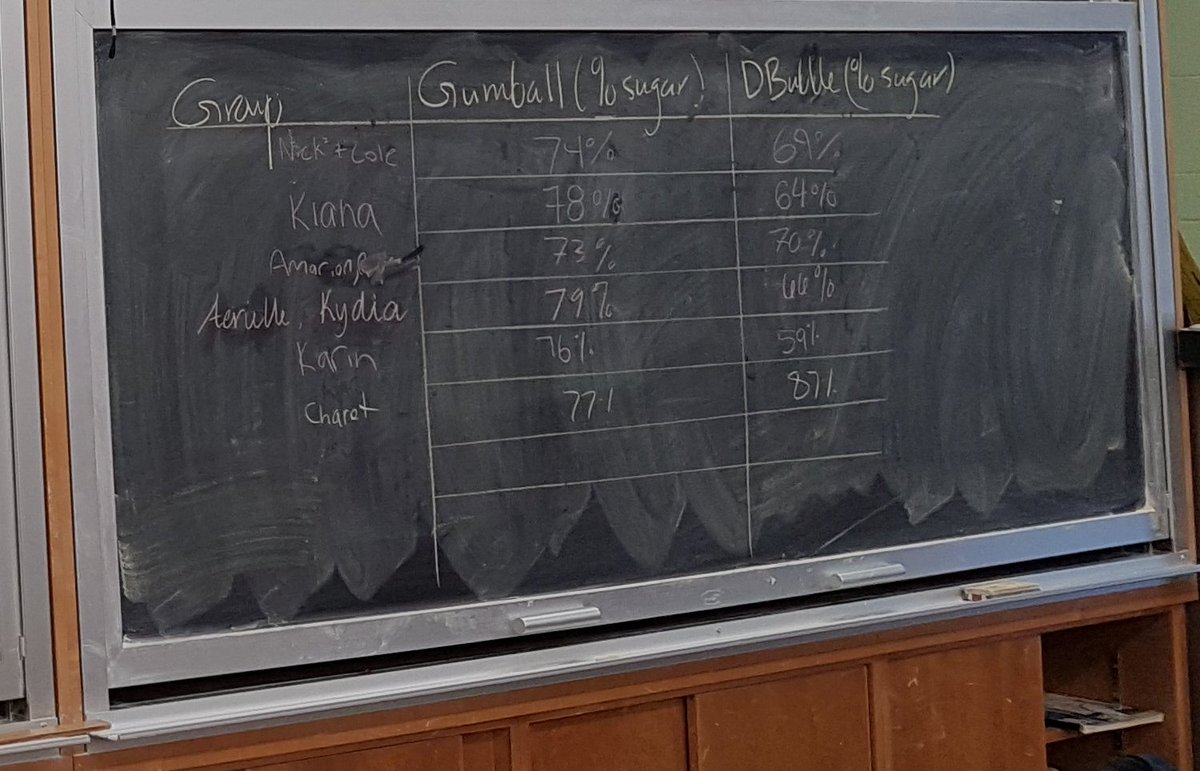 Group Gumball (% sugar) DBubble (% sugar)
Nick + Cole 74% 69%
Kiana 78% 64%
Amarion 73% 70%
Aerielle, Kydia 79% 66%
Karin 76% 59%
Charet 77% 87%